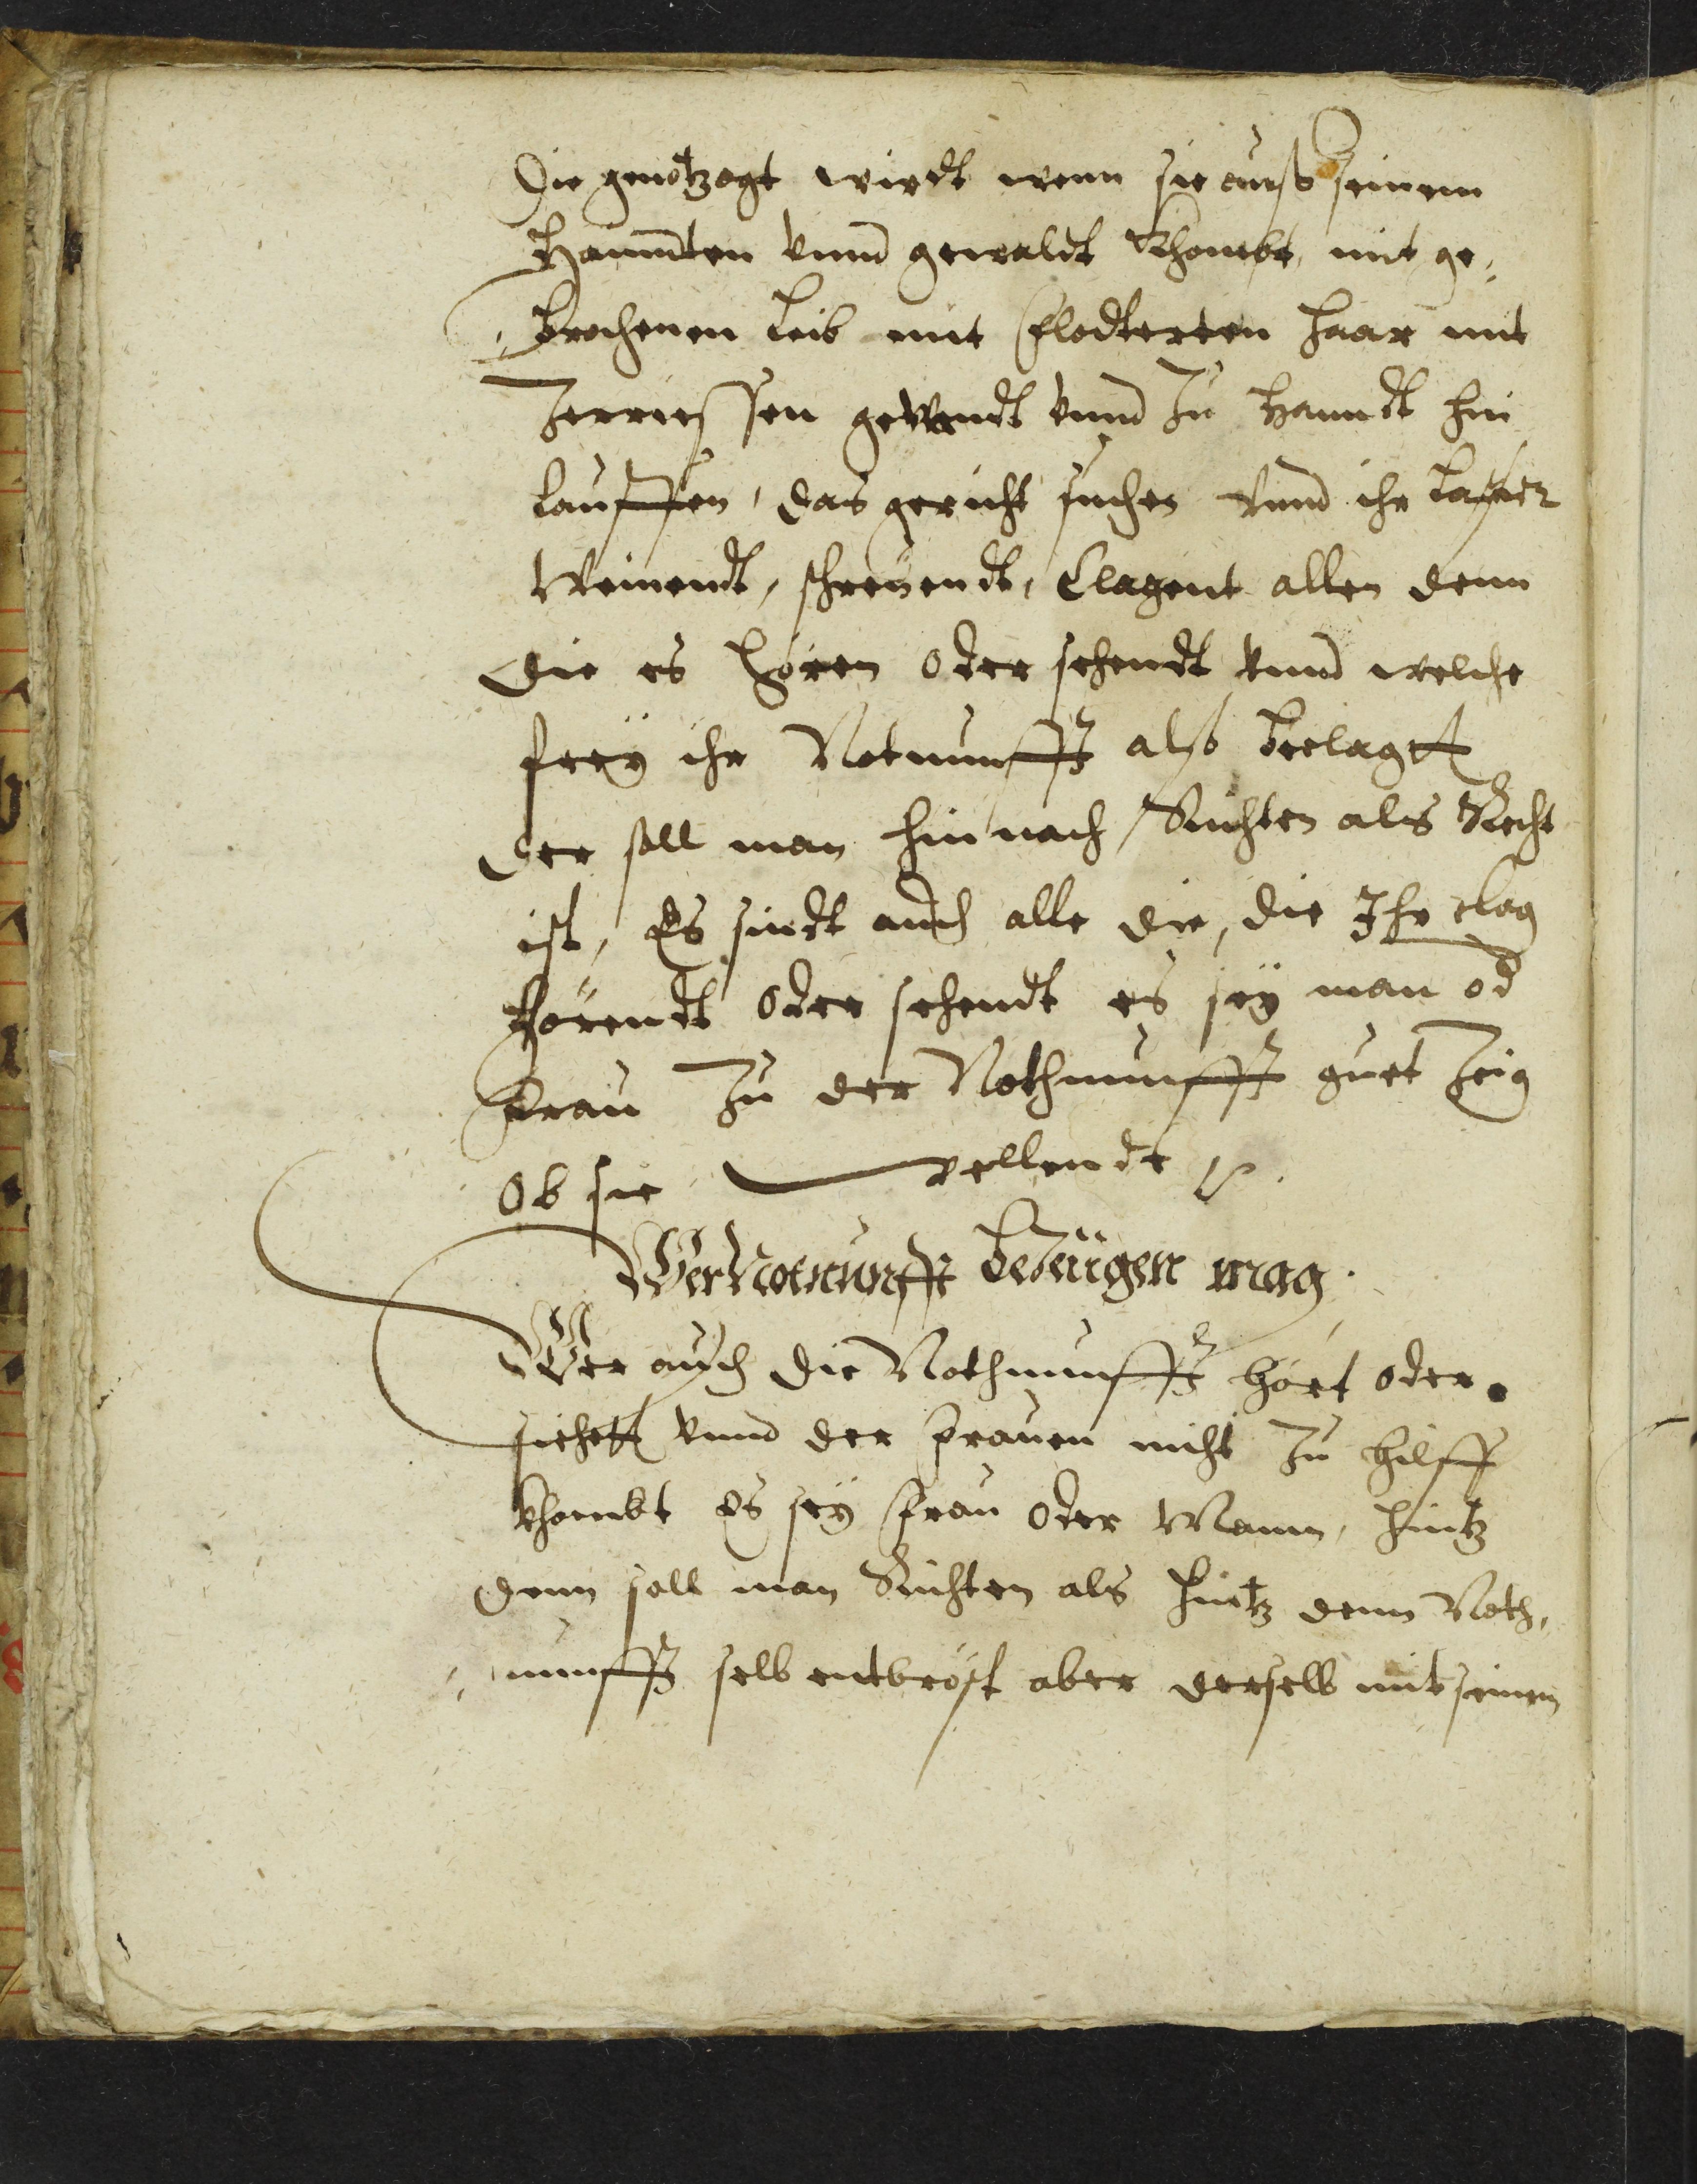 Die genotzogt wirdt wenn sie auß seinem
Hanndten vnnd gewaldt khombt, mit ge¬
brochenen Leib mit flodterten haar mit
Zerrissen gewandt vnnd zu Hanndt hin
lauffen, das gericht suchen vnnd ihr laster
weinendt, schreyendt, Clagent allen denn
die es hören oder sehendt vnnd welche
frey ihr Notnunfft alß beclagtt
der soll man hinnach Richten als Recht
ist, Es sindt auch alle die, die Ihr clag
hörendt oder sehendt es sey man od
frau Zu der Nothnunfft guet Zeig
Ob sie wellendt
Wer Notnunfft bezeügen mag.
Wer auch die Nothnunfft hört oder
siehett vnnd der frauen nicht Zu hilff
khombt Es sey frau oder Mann, hintz
denn soll man Richten als hintz denn Noth¬
nunfft selb entbrost aber derselb mit seinem